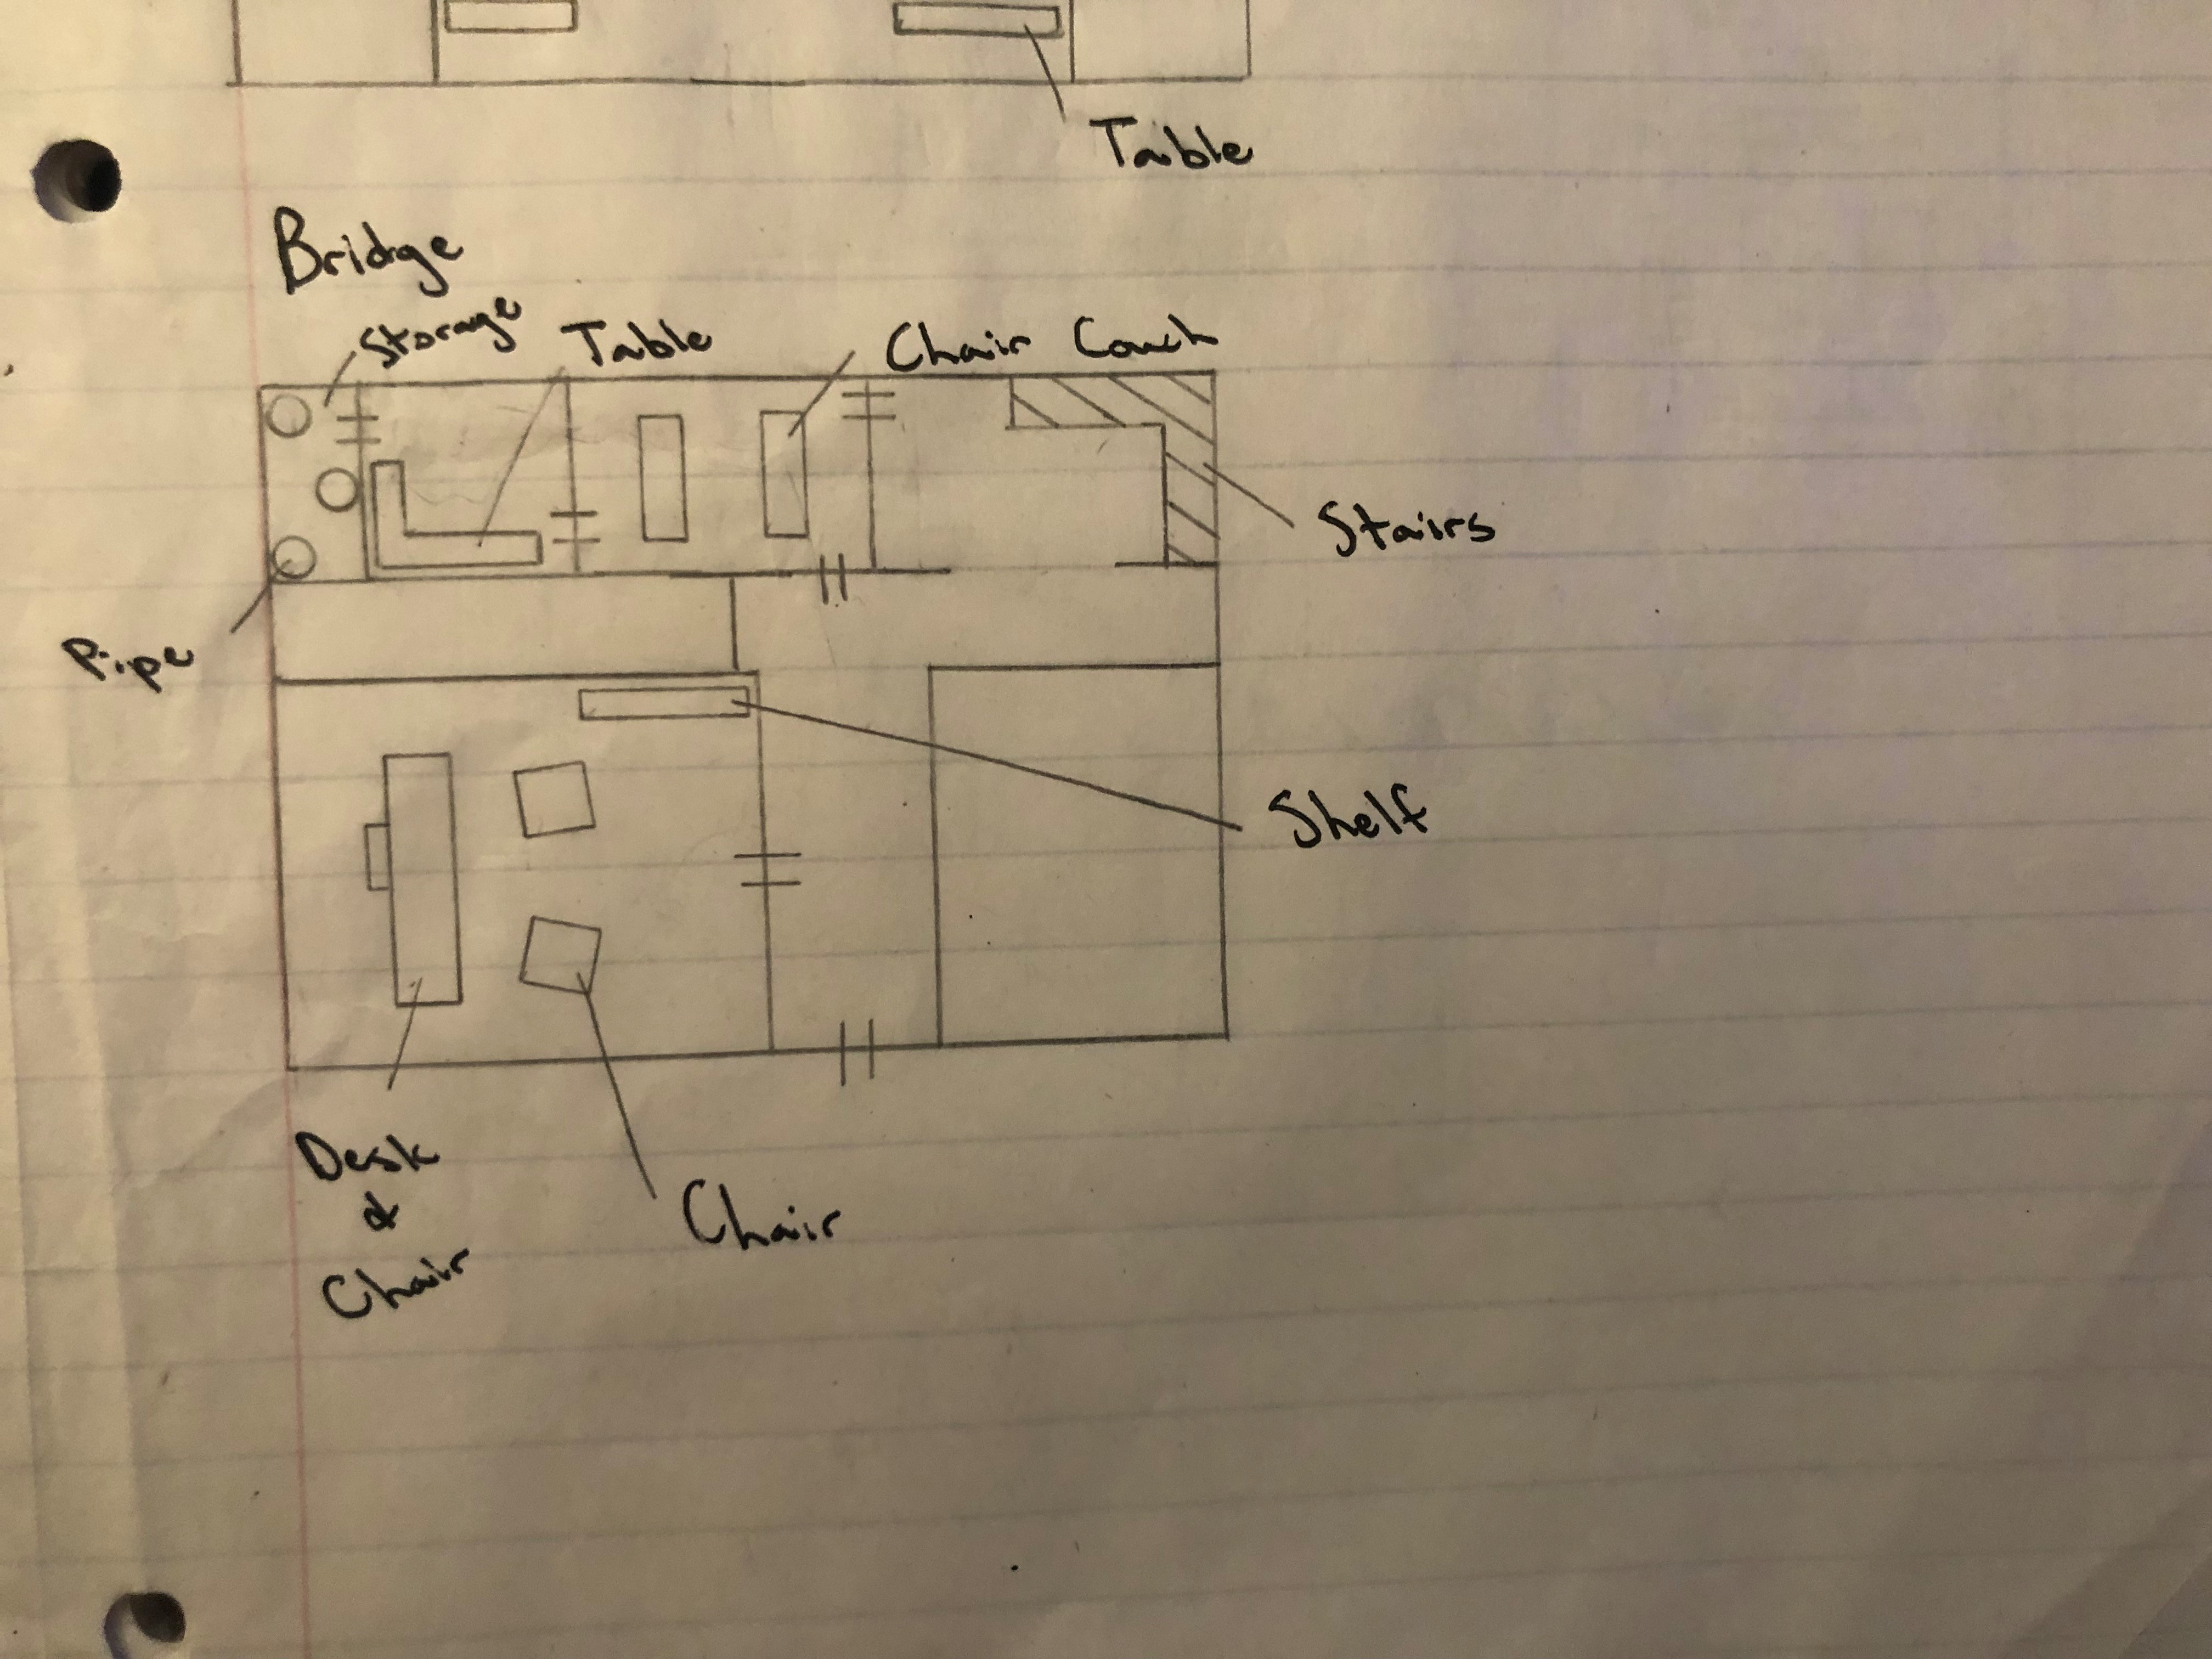 Table
Bridge
Storage
Table
Chair Couch
Stairs
Pipe
Shelf
Desk
&
Chair
Chair